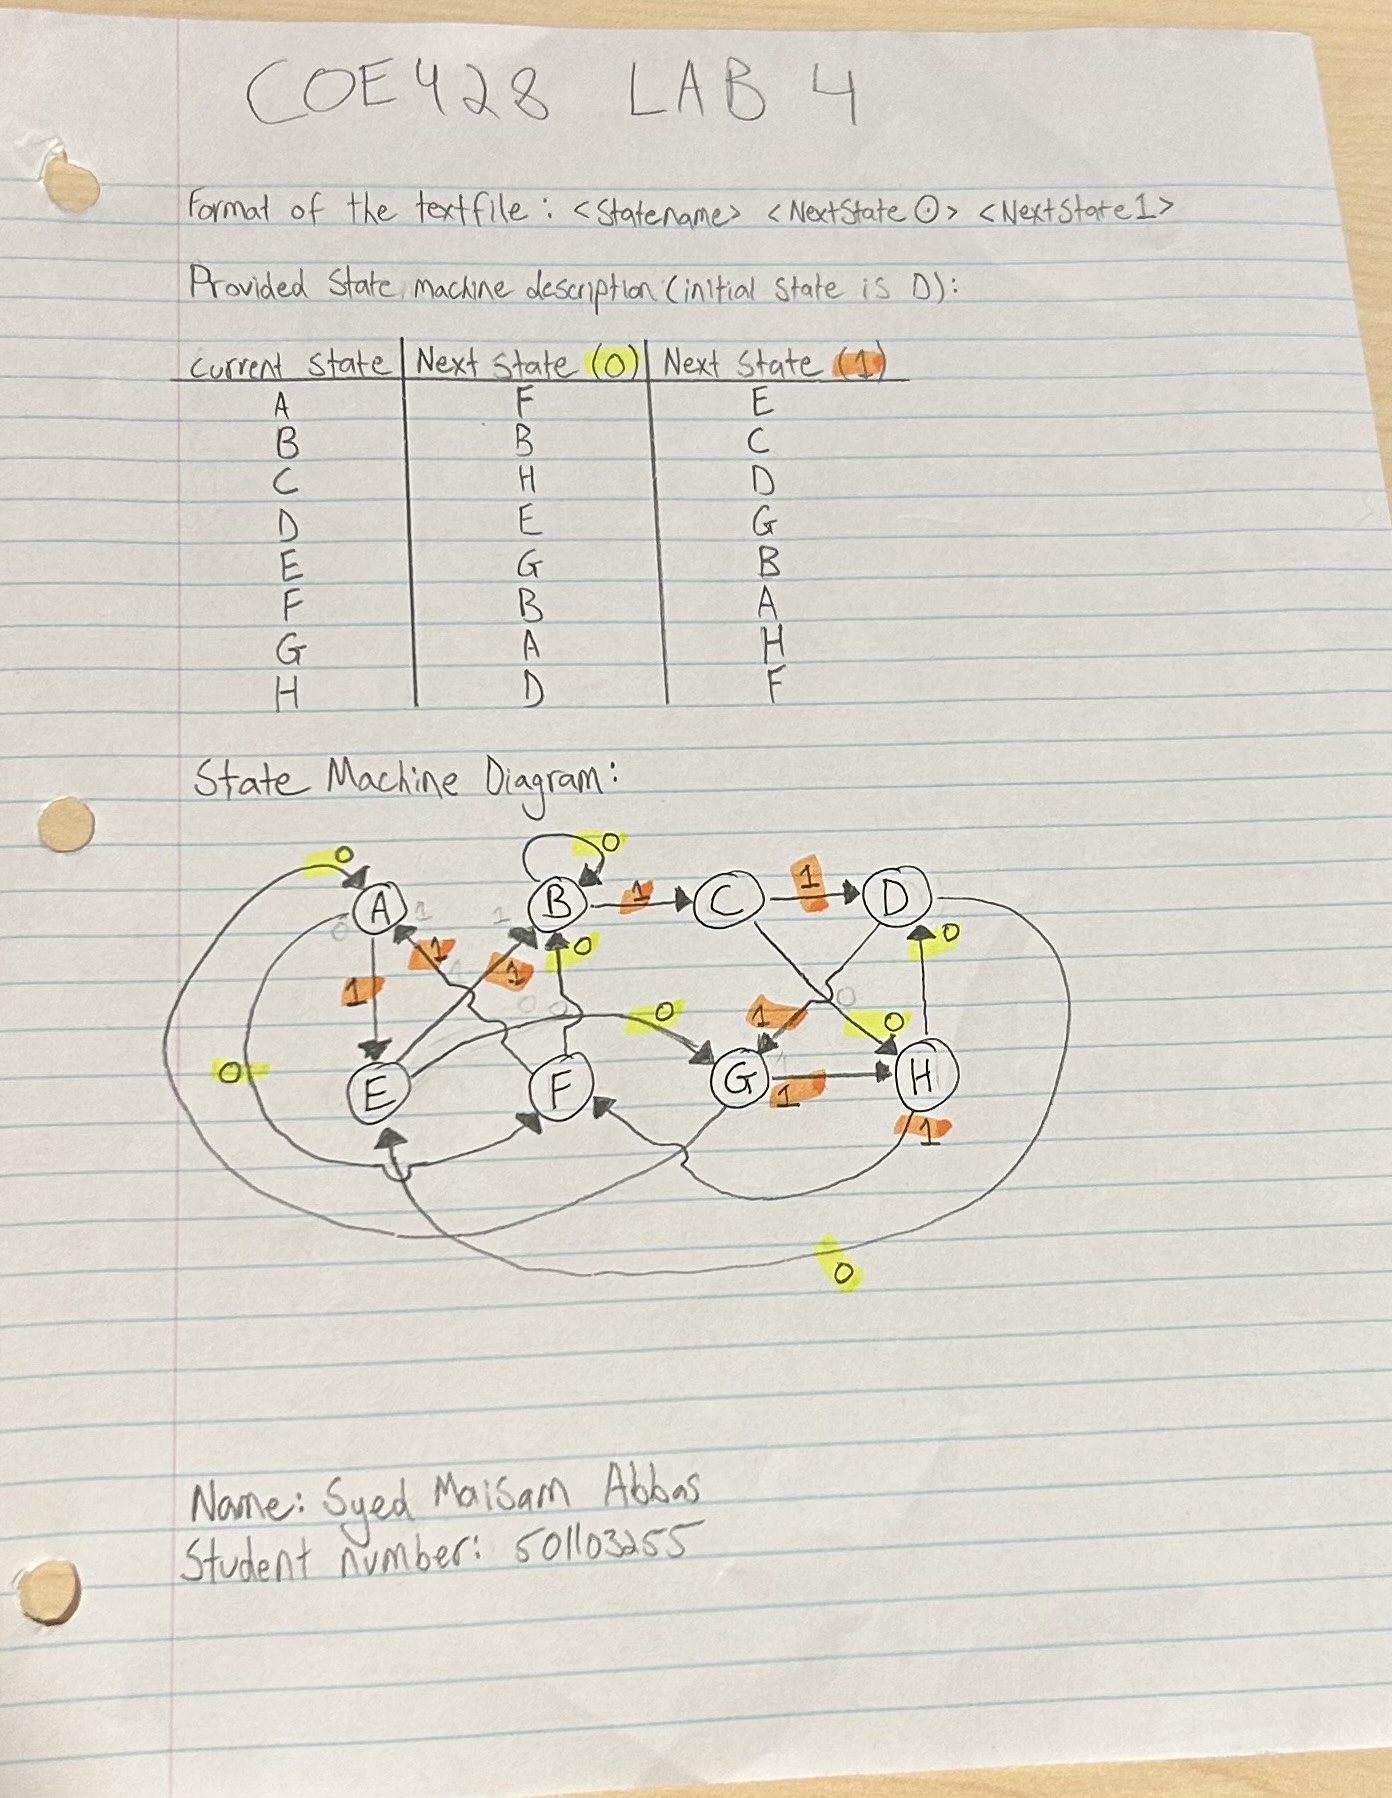 COE428 LAB 4
Format of the textfile: <Statename> <NextState 0> <NextState1>
Provided State machine description (initial state is D):
Current State Next State (0) Next State (1)
A F E
B B C
C H D
D E G
E G B
F B A
G A H
H D F
State Machine Diagram:
0
0
A 1 1 B 1 C 1 D
0
1 1 0 0
1 1
0 0 0
0 1 0 0
1
0
E F G 1 H
1
0
Name: Syed Maisam Abbas
Student number: 501103255